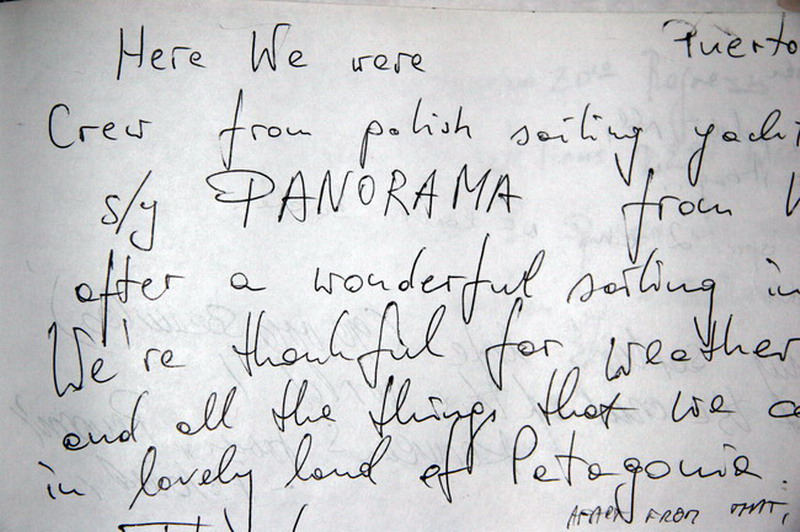 Here We were Puerto
Crew from polish sailing yacht
s/y PANORAMA from
after a wonderful sailing in
We're thankful for weather
and all the things that we
in lovely land of Patagonia.
APART FROM THAT,